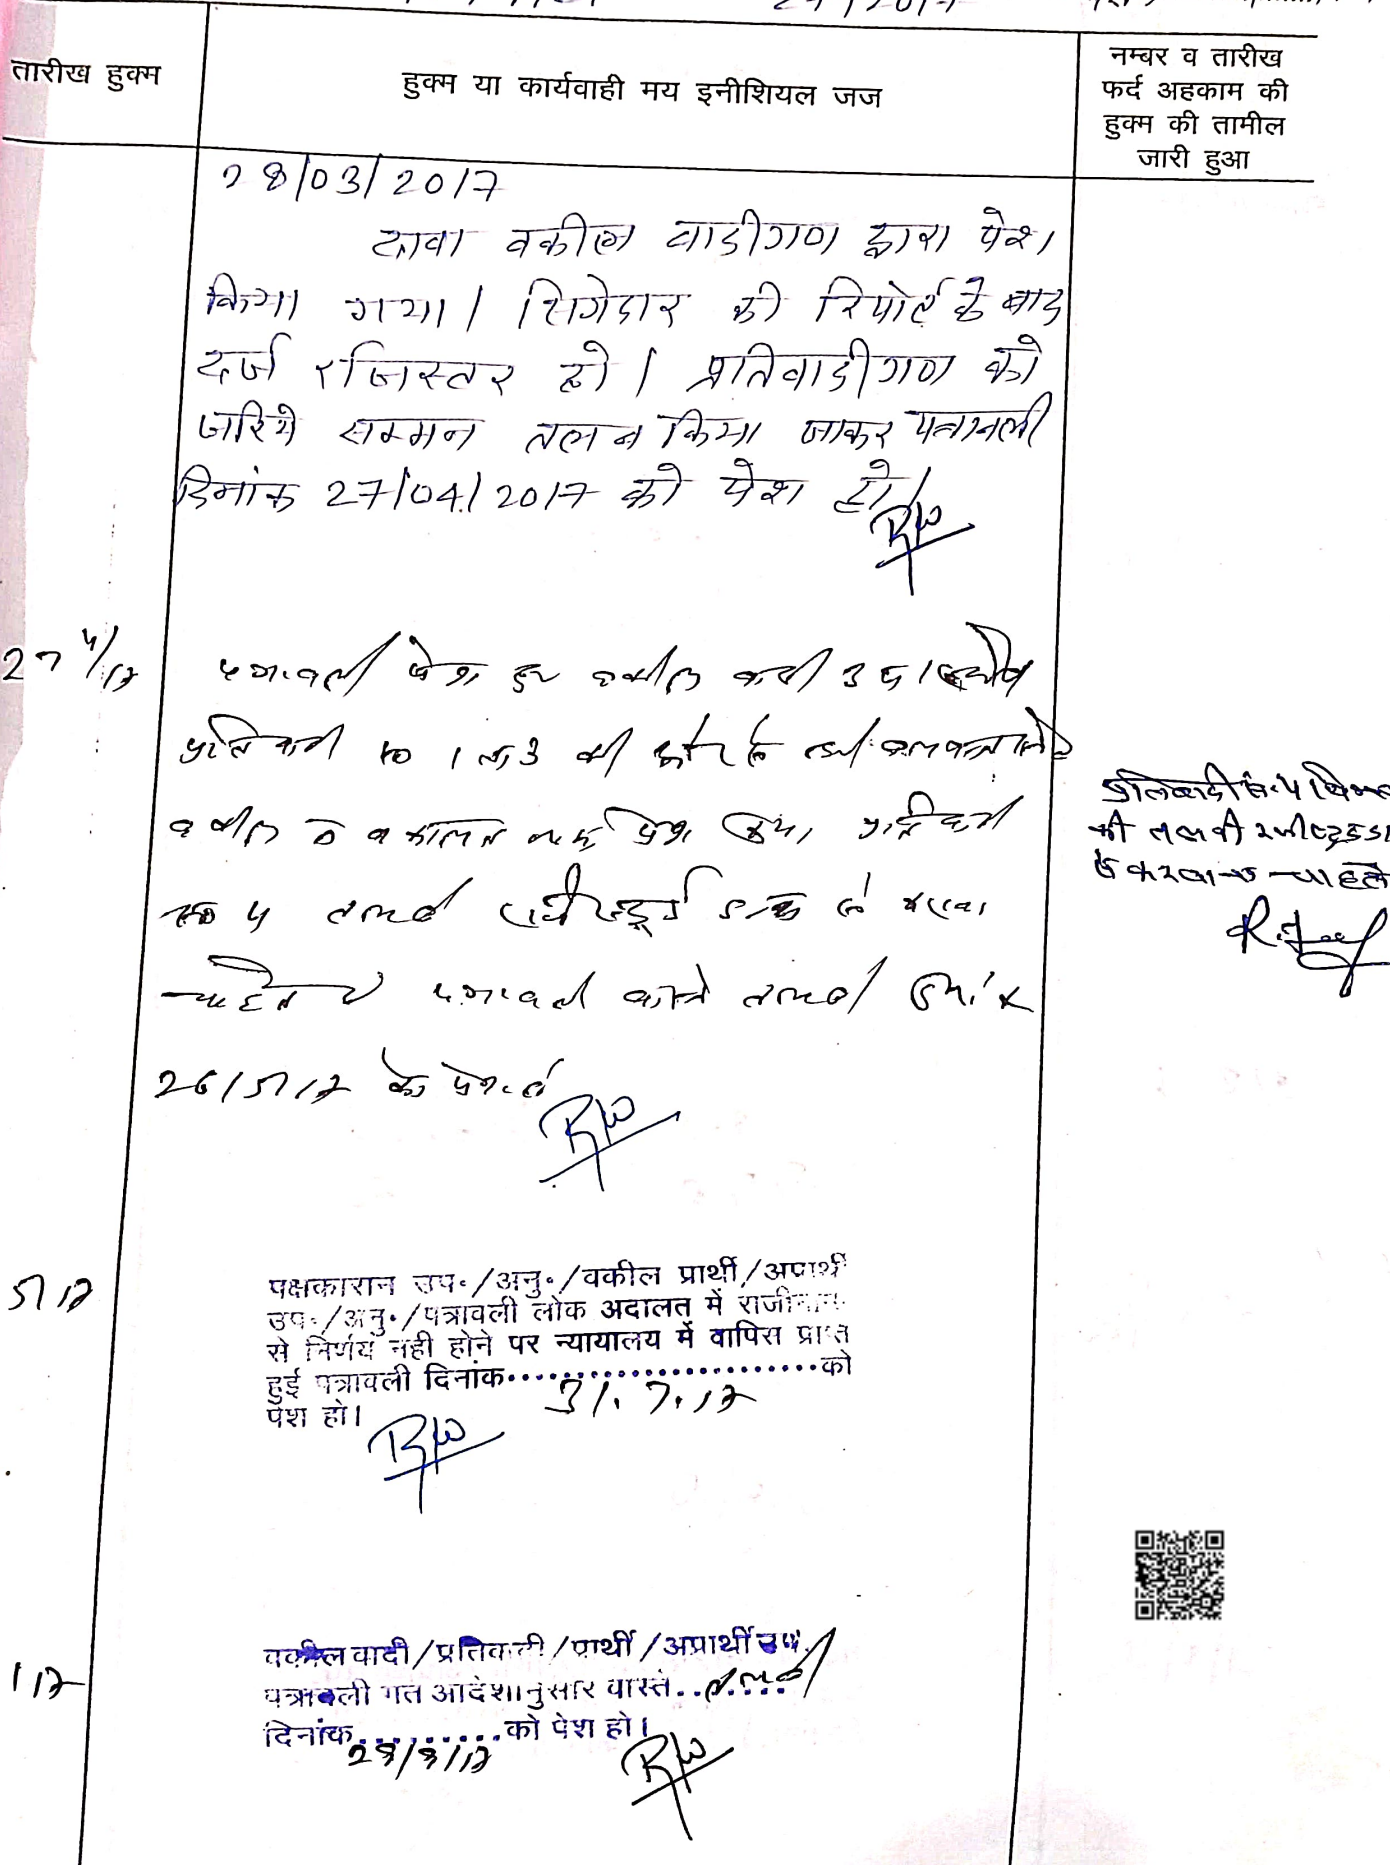 तारीख हुक्म
हुक्म या कार्यवाही मय इनीशियल जज
नम्बर व तारीख
फर्द अहकाम की
हुक्म की तामील
जारी हुआ
28/03/2017
दावा वकील वादीगण द्वारा पेश
किया गया। सिगेदार की रिपोर्ट के बाद
दर्ज रजिस्तर हो। प्रतिवादीगण को
जरिये सम्मन तलब किया जाकर पत्रावली
दिनांक 27/04/2017 को पेश हो।
27 4/17
पत्रावली पेश हुई वकील वादी उप।
प्रतिवादी 1 ता 3 की ओर से
वकील ने वकालत नामा पेश किया प्रतिवादी
4 तलबी रजिस्टर्ड डाक से करवाना
चाहते है पत्रावली वास्ते तलबी दिनांक
26/5/17 को पेश हो
प्रतिवादी सं. 4
की तलबी रजीस्टर्ड डा
से करवाना चाहते
5/17
पक्षकारान उप./अनु./वकील प्रार्थी/अप्रार्थी
उप./अनु./पत्रावली लोक अदालत में राजीनामा
से निर्णय नही होने पर न्यायालय में वापिस प्राप्त
हुई पत्रावली दिनांक.......................को
31.7.17
पेश हो।
1/17
वकील वादी/प्रतिवादी/प्रार्थी/अप्रार्थी उप.
पत्रावली गत आदेशानुसार वास्ते..तलबी....
दिनांक..........को पेश हो।
28/8/17